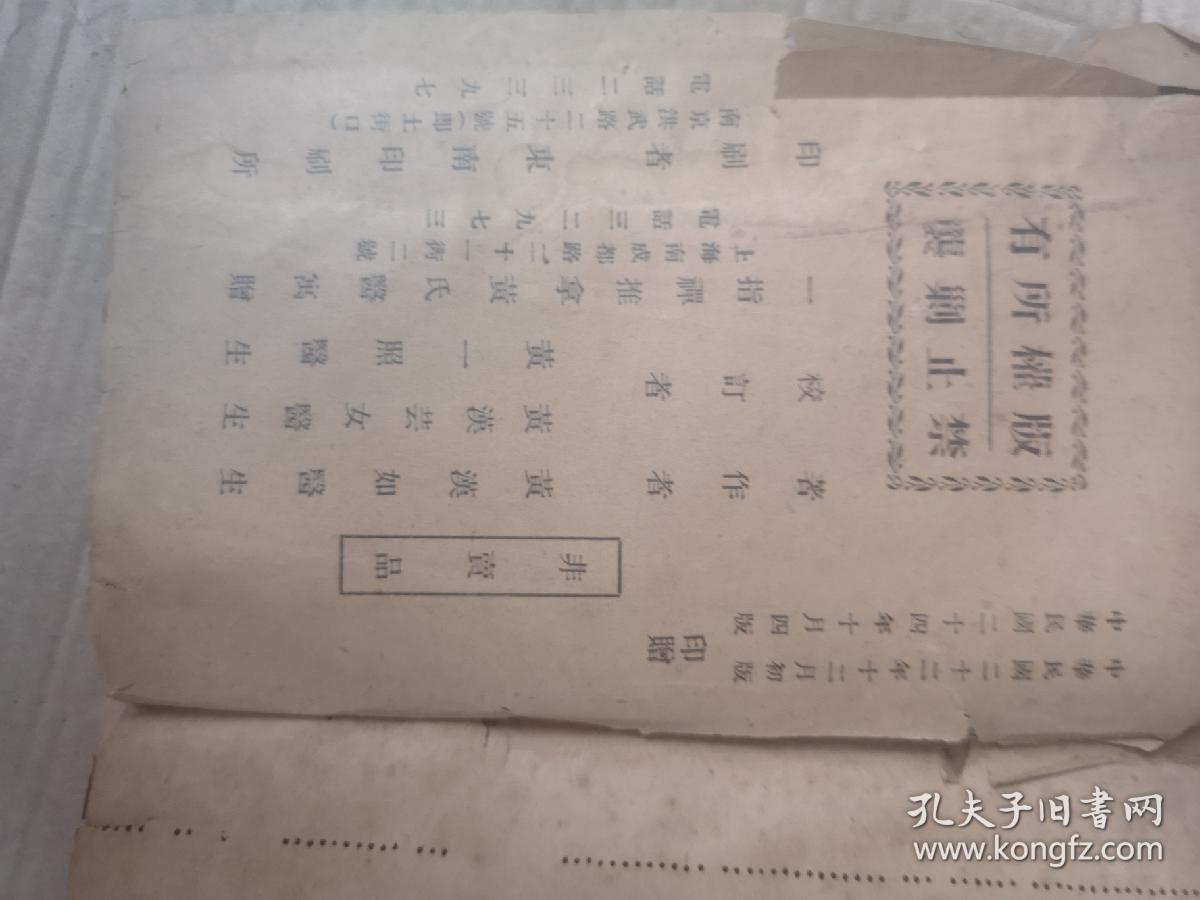 中華民國二十二年十二月初版
中華民國二十四年十月四版
印贈
非賣品
著作者 黃漢如醫生
校訂者 黃漢芸女醫生
黃一照醫生
一指禪推拿黃氏醫寓贈
上海南成都路二十一街二號
電話三二九七三
印刷者 東南印刷所
南京洪武路二十五號(即土街口)
電話二三三九七
版權所有
禁止剿襲
孔夫子旧书网
www.kongfz.com